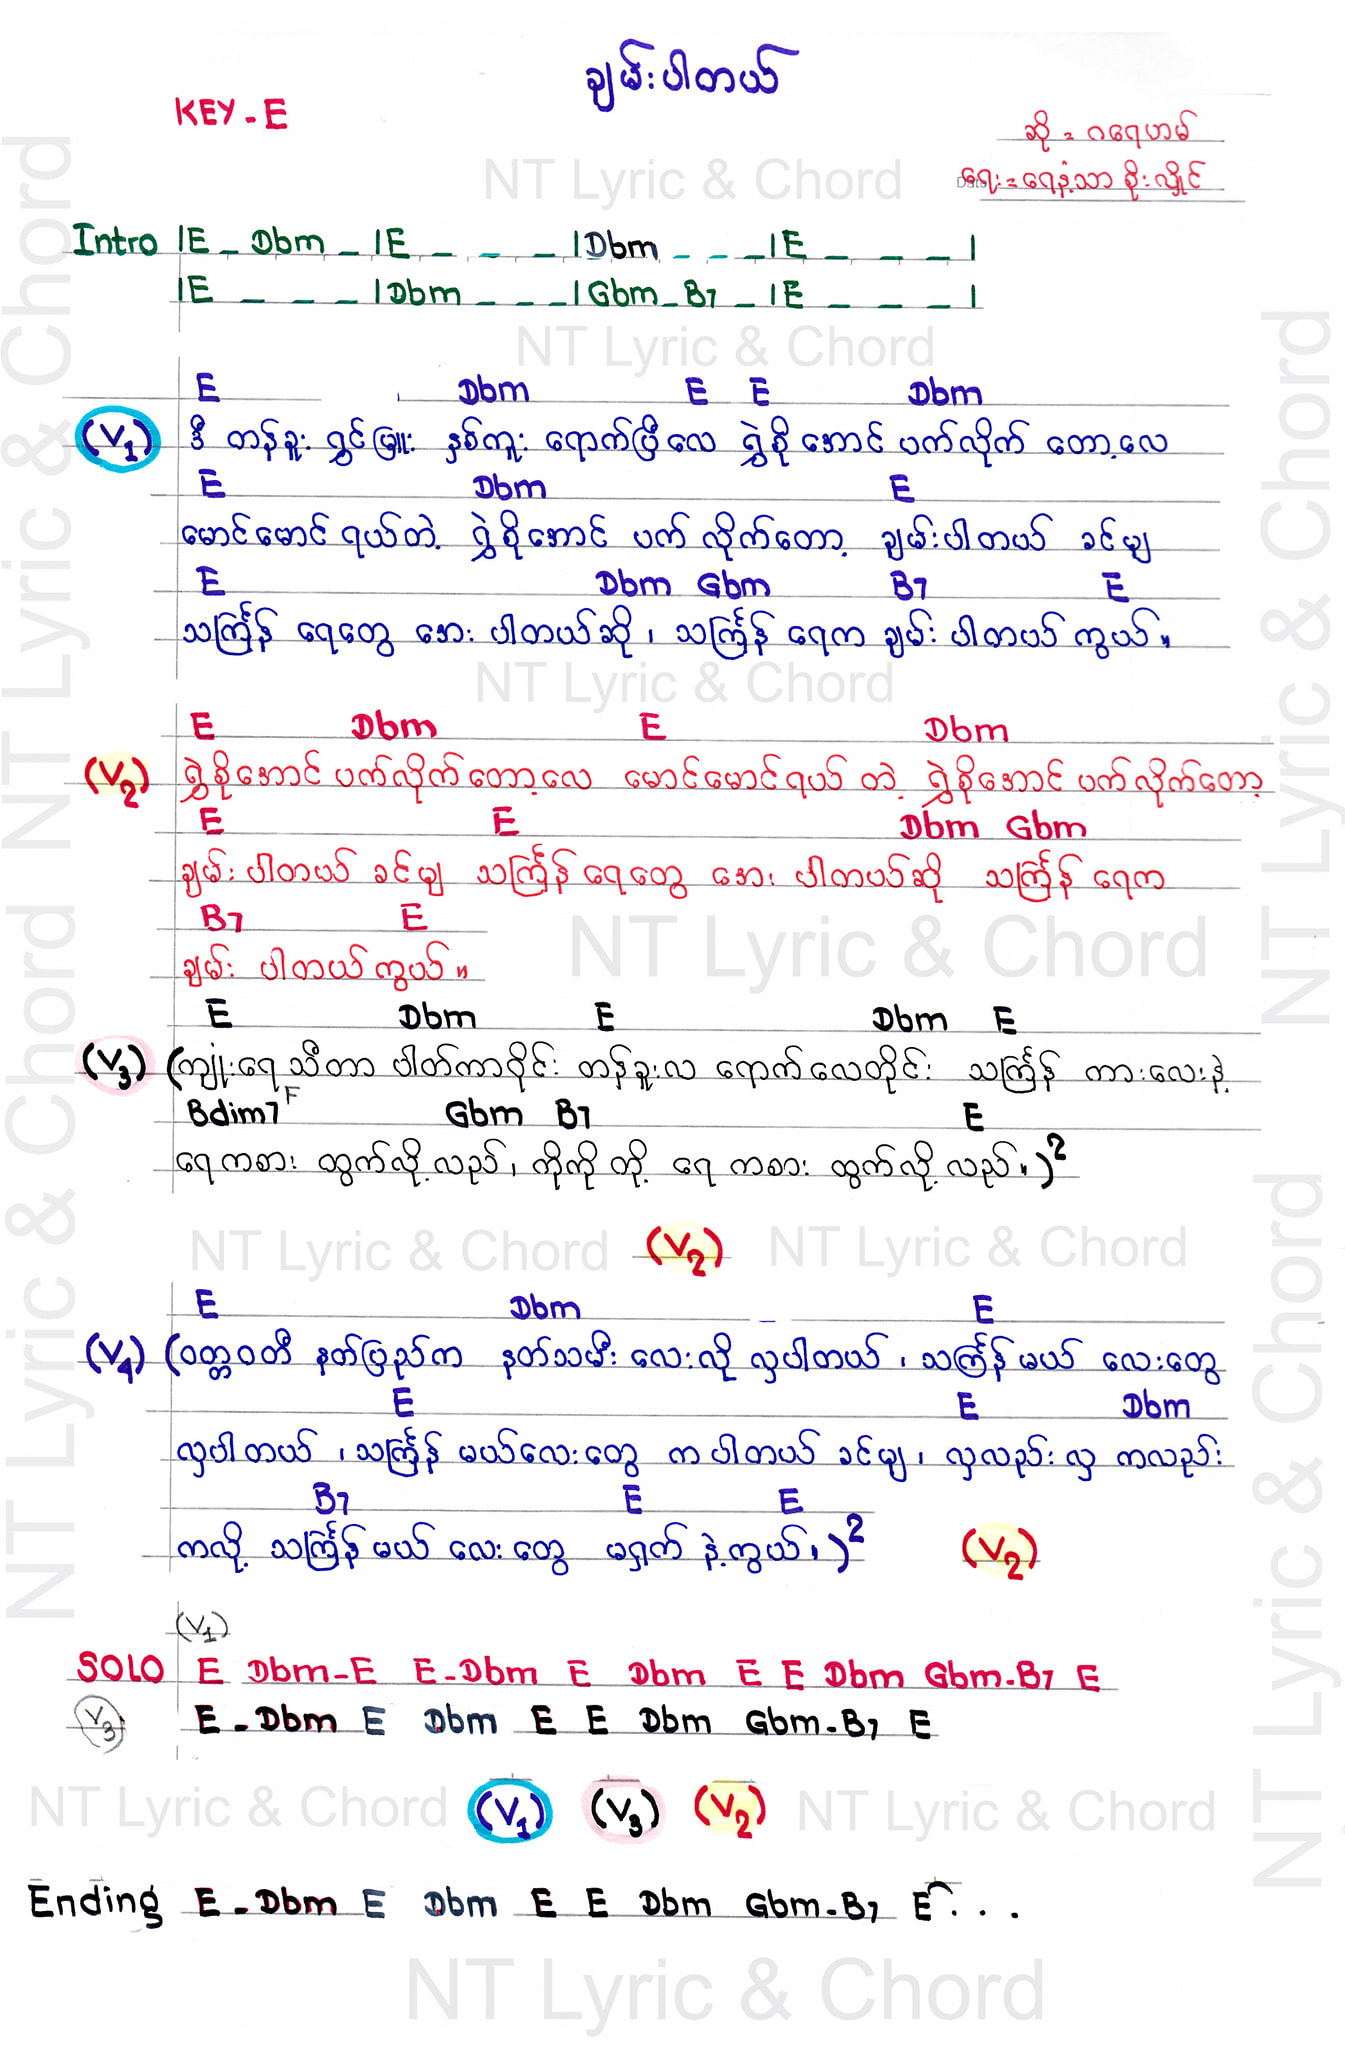 ချမ်းပါတယ်
KEY - E
ဆို = ဂရေဟမ်
ရေး = ရေနံ့သာ စိုးလှိုင်
NT Lyric & Chord
Intro |E _ Dbm _ |E _ _ _ |Dbm _ _ _ |E _ _ _ |
|E _ _ _ |Dbm _ _ _ |Gbm _ B7 _ |E _ _ _ |
NT Lyric & Chord
E Dbm E E Dbm
(V1) ဒီ တန်ခူး ရွှင်မြူး နှစ်ကူး ရောက်ပြီလေ ရွှဲစိုအောင် ပက်လိုက် တော့လေ
E Dbm E
မောင်မောင်ရယ်တဲ့ ရွှဲစိုအောင် ပက် လိုက်တော့ ချမ်းပါတယ် ခင်မျ
E Dbm Gbm B7 E
သင်္ကြန် ရေတွေ အေး ပါတယ်ဆို ၊ သင်္ကြန် ရေက ချမ်း ပါတယ် ကွယ် ။
NT Lyric & Chord
E Dbm E Dbm
(V2) ရွှဲစိုအောင် ပက်လိုက်တော့လေ မောင်မောင်ရယ် တဲ့ ရွှဲစိုအောင် ပက်လိုက်တော့
E E Dbm Gbm
ချမ်း ပါတယ် ခင်မျ သင်္ကြန် ရေတွေ အေး ပါတယ်ဆို သင်္ကြန် ရေက
B7 E
ချမ်း ပါတယ် ကွယ် ။
NT Lyric & Chord
E Dbm E Dbm E
(V3) (ကျုံးရေ သီတာ ပါတ်ကာဝိုင်း တန်ခူးလ ရောက်လေတိုင်း သင်္ကြန် ကားလေးနဲ့
Bdim7 F Gbm B7 E
ရေကစား ထွက်လို့ လည် ၊ ကိုကို တို့ ရေ ကစား ထွက်လို့ လည် ။)2
NT Lyric & Chord (V2) NT Lyric & Chord
E Dbm E
(V4) (ဝတ္တဝတီ နတ်ပြည်က နတ်သမီး လေးလို လှပါတယ် ၊ သင်္ကြန် မယ် လေးတွေ
E E Dbm
လှပါတယ် ၊ သင်္ကြန် မယ်လေးတွေ က ပါတယ် ခင်မျ ၊ လှလည်း လှ ကလည်း
B7 E E
ကလို့ သင်္ကြန် မယ် လေး တွေ မရှက် နဲ့ကွယ် ၊ )2 (V2)
(V1)
SOLO E Dbm-E E-Dbm E Dbm E E Dbm Gbm-B7 E
V3 E - Dbm E Dbm E E Dbm Gbm-B7 E
NT Lyric & Chord (V1) (V3) (V2) NT Lyric & Chord
Ending E - Dbm E Dbm E E Dbm Gbm-B7 E . . .
NT Lyric & Chord
NT Lyric & Chord
NT Lyric & Chord
NT Lyric & Chord
NT Lyric & Chord
NT Lyric & Chord